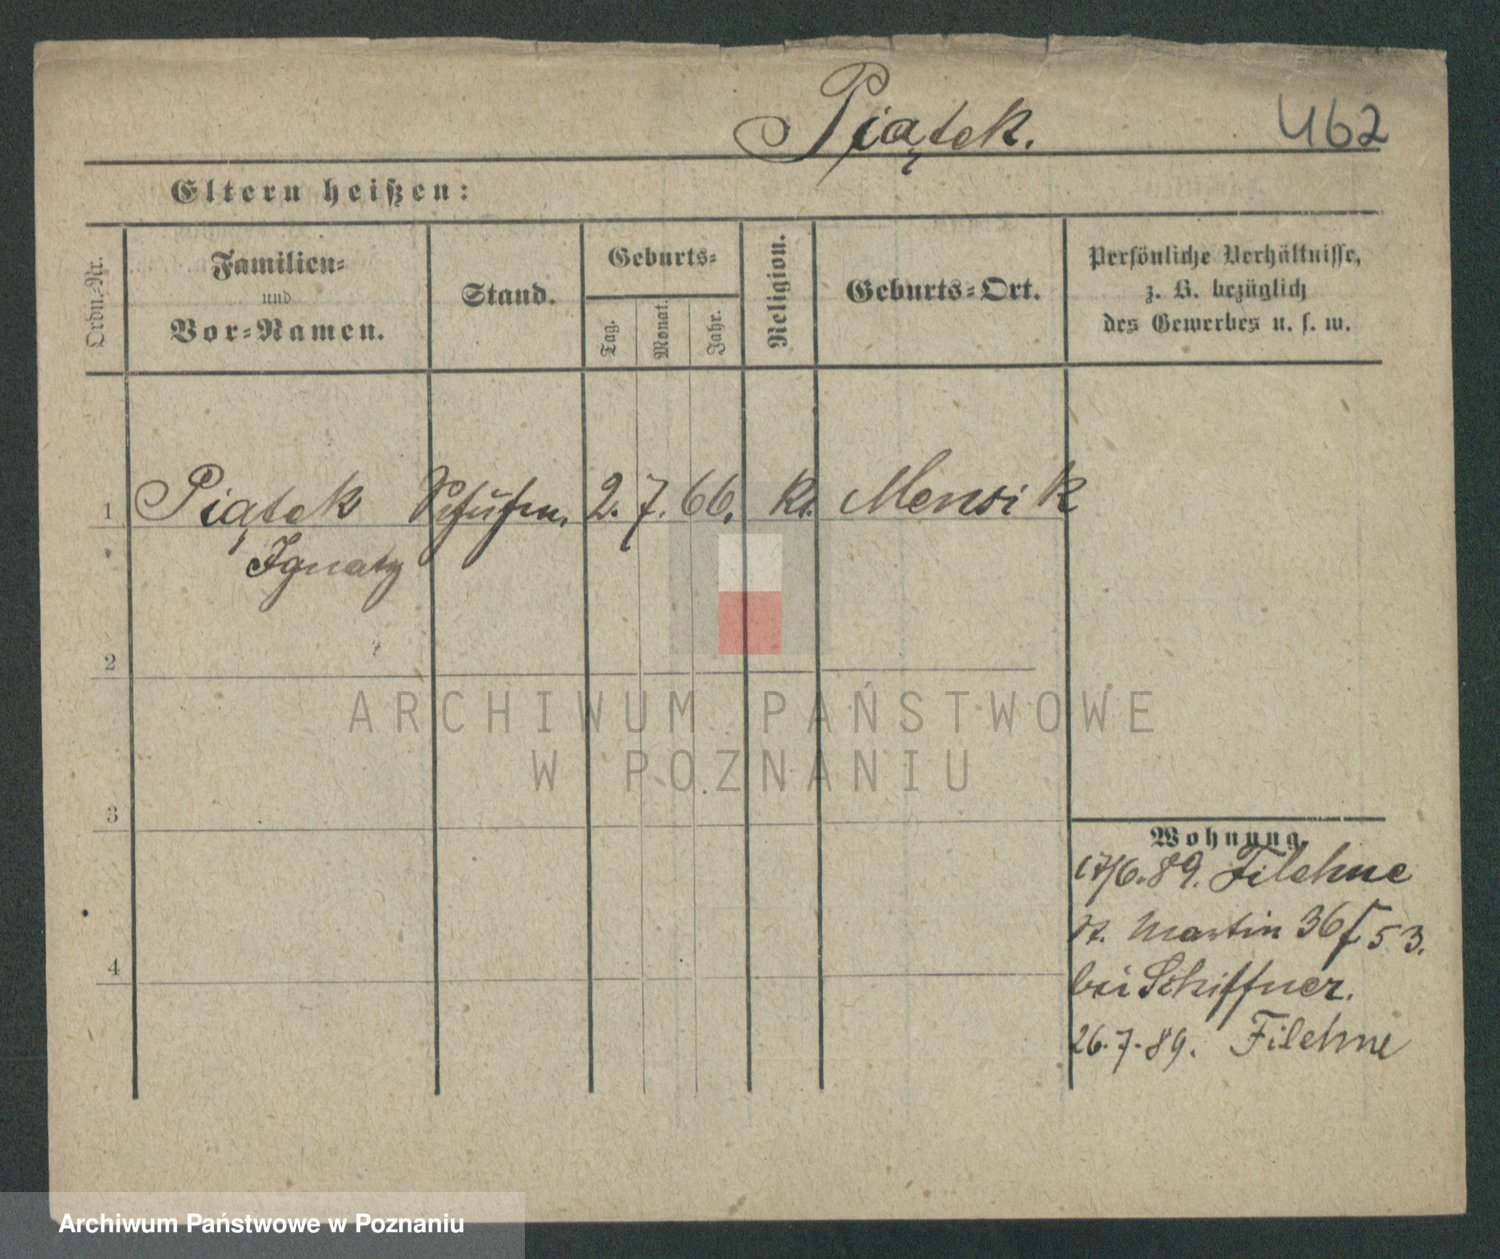 Piątek.
462
Eltern heißen:
Ordn.-Nr.
Familien-
und
Vor-Namen.
Stand.
Geburts-
Tag.
Monat.
Jahr.
Religion.
Geburts-Ort.
Persönliche Verhältnisse,
z. B. bezüglich
des Gewerbes u. s. w.
1 Piątek 2. 7. 66. k. Mensik
Ignatz
2
3
4
Wohnung.
17/6.89. Filehne
St. Martin 36 53.
bei Schiffner.
26.7.89. Filehne
ARCHIWUM PAŃSTWOWE
W POZNANIU
Archiwum Państwowe w Poznaniu